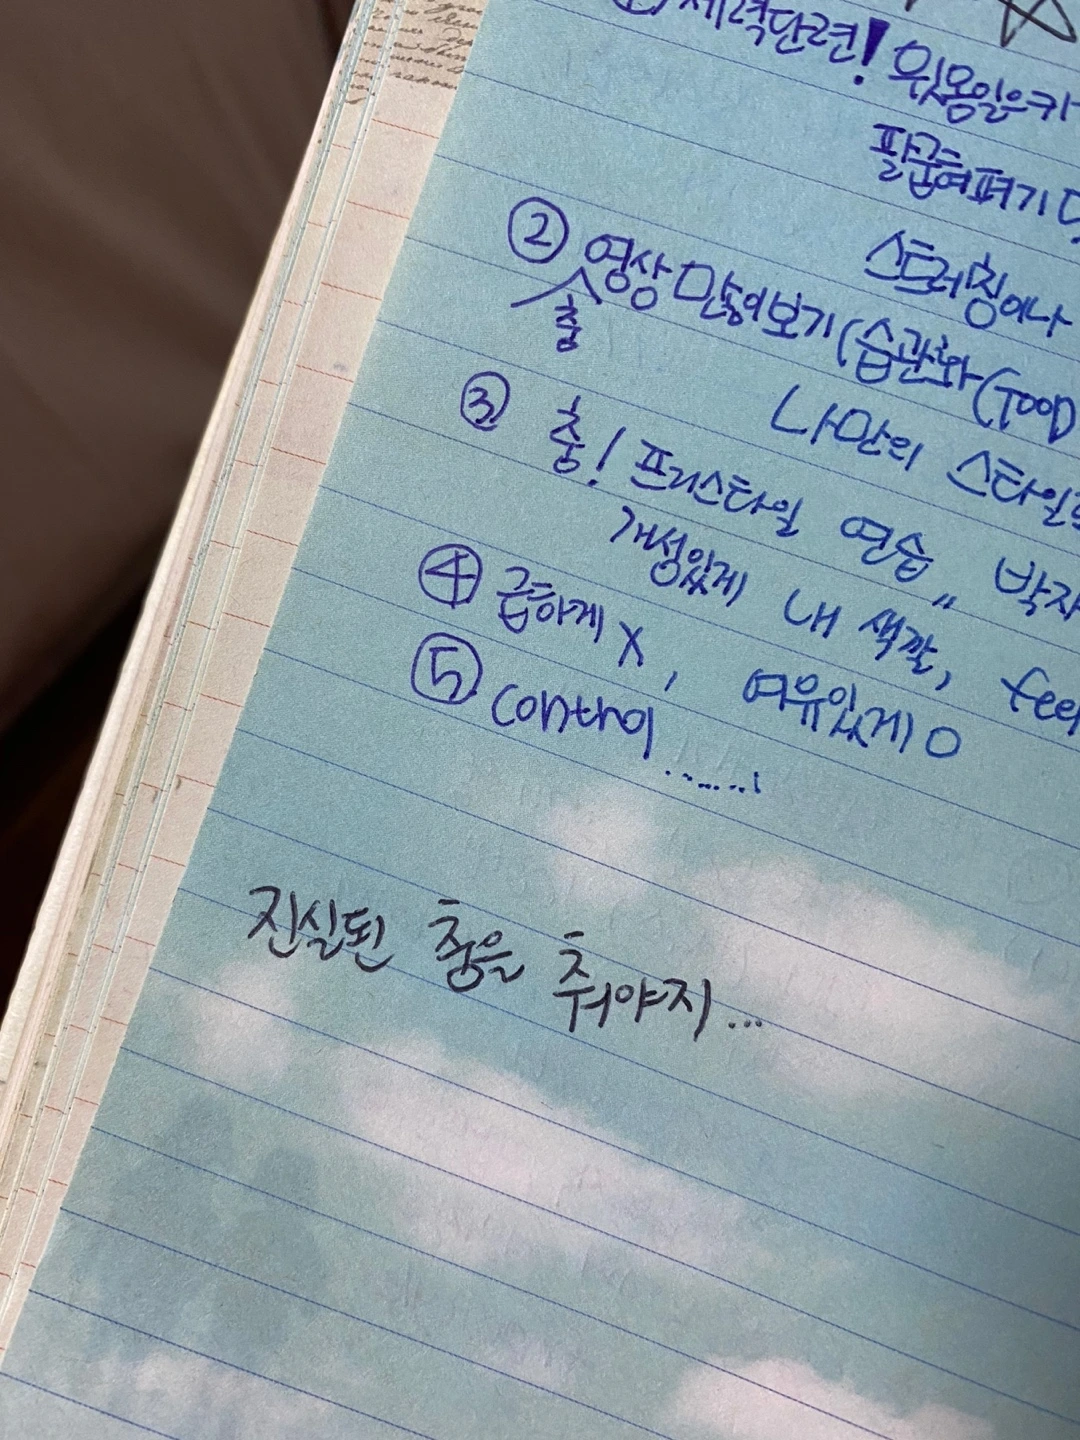 ① 체력단련! 윗몸일으키
팔굽혀펴기
스트레칭이나
② 영상 많이 보기 (습관화 (GOOD
춤
나만의 스타일
③ 춤! 프리스타일 연습,, 박자
개성있게 내 색깔, feel
④ 급하게 X, 여유있게 O
⑤ control ......
진실된 춤을 춰야지...